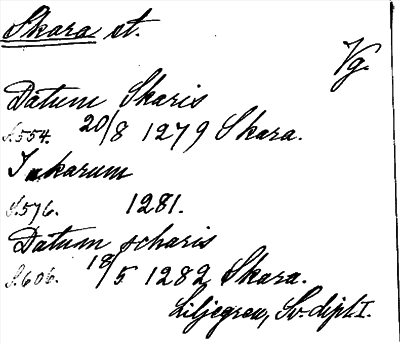 Skara st.
Vg.
Datum Skaris
S.554. 20/8 1279 Skara.
In karum
S.576. 1281.
Datum scharis
S.606. 18/5 1282 Skara.
Liljegren, Sv. dipl. I.